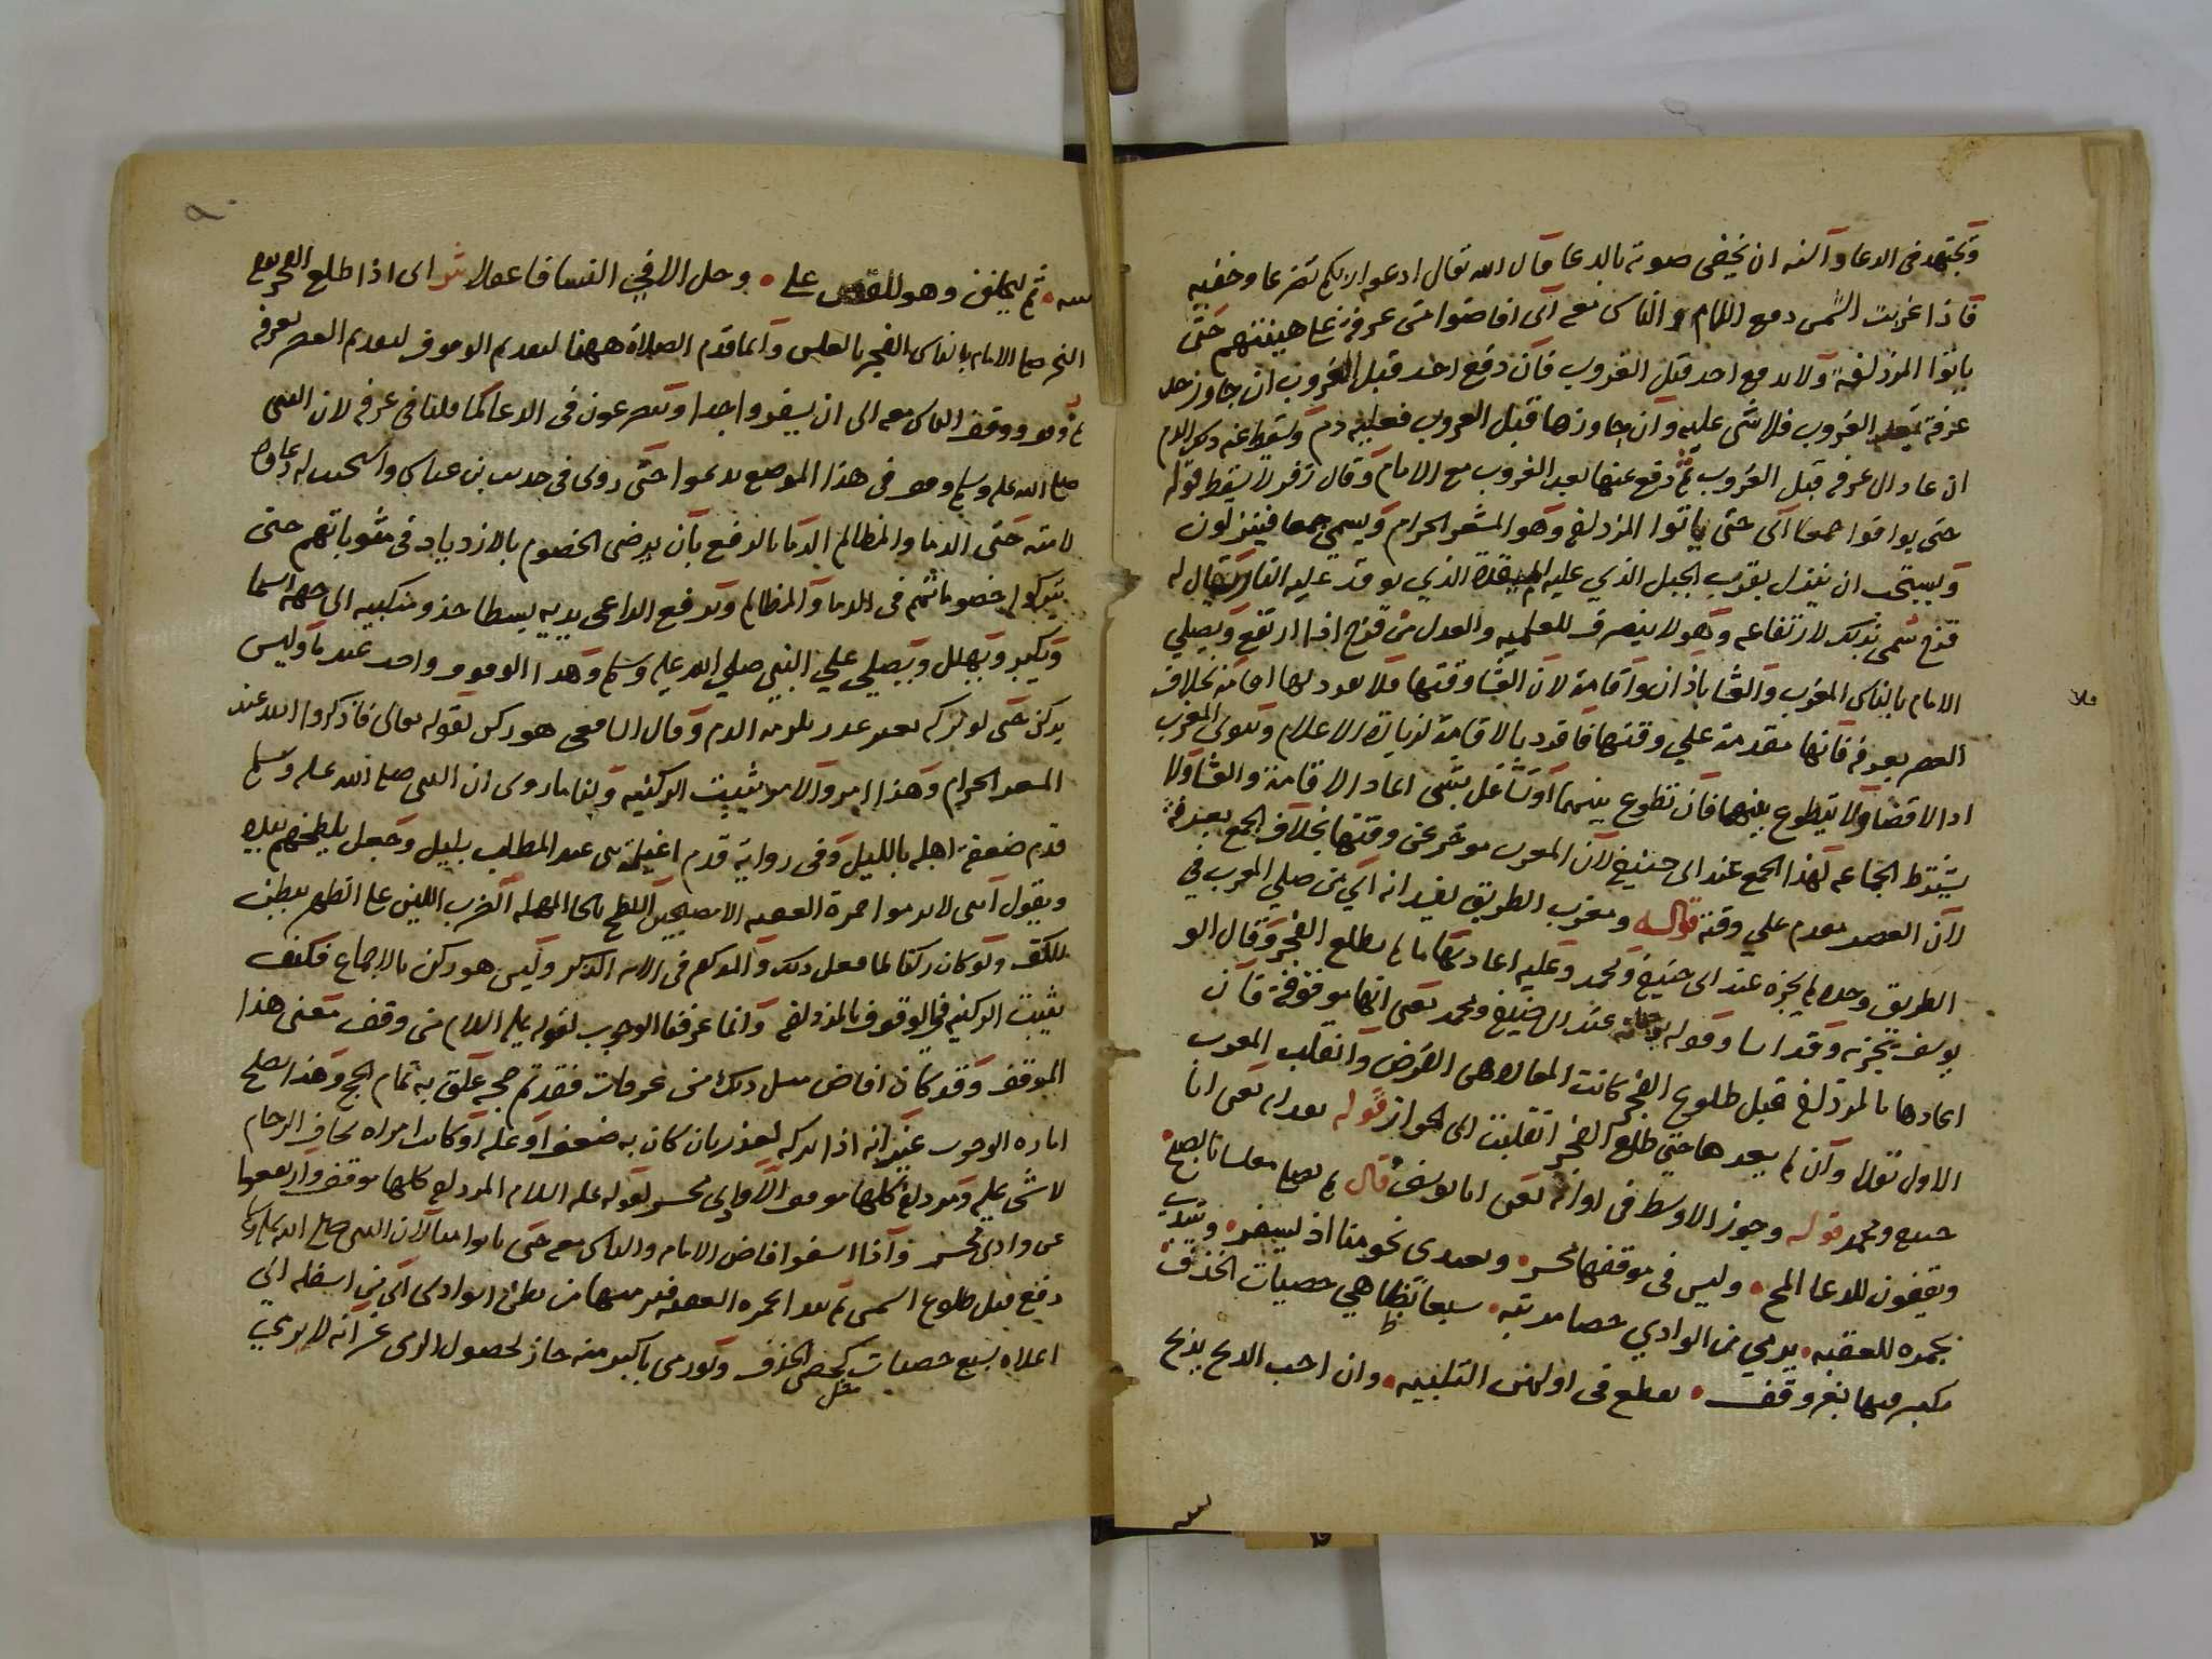 ويجتهد فى الدعا والسنه ان يخفى صوته بالدعا قال الله تعالى ادعوا ربكم تضرعا وخفيه
فاذا غربت الشمس دفع الامام والناس معه اى افاضوا من عرفة على هينتهم حتى
ياتوا المزدلفة ولا يدفع احد قبل الغروب فان دفع احد قبل الغروب ان جاوز حد
عرفة بعد الغروب فلا شى عليه وان جاوزها قبل الغروب فعليه دم ويسقط عنه ذلك الدم
ان عاد الى عرفه قبل الغروب ثم دفع عنها بعد الغروب مع الامام وقال زفر لا يسقط قوله
حتى يوافوا جمعا اى حتى ياتوا المزدلفه وهو المشعر الحرام ويسمى جمعا فينزلون
ويستحب ان ينزل بقرب الجبل الذي عليه الميقدة الذي يوقد عليه النار يقال له
قزح سمى بذلك لارتفاعه وهو لا ينصرف للعلميه والعدل من قزح اذا ارتفع ويصلي
الامام بالناس المغرب والعشا باذان واقامة لان العشا وقتها فلا يعود لها اقامة بخلاف
العصر بعرفه فانها مقدمة علي وقتها فافرد بالاقامة لزيادة الاعلام وينوى المغرب
ادا لا قضا ولا يتطوع بينهما فان تطوع بينهما او تشاغل بشى اعاد الاقامة والعشا ولا
يشترط الجماعه لهذا الجمع عند ابى حنيفه لان المغرب موخر عن وقتها بخلاف الجمع بعرفة
لان العصر مقدم علي وقته قوله ومغرب الطريق لغيد انه اى من صلي المغرب في
الطريق وحده لم يجزه عند ابى حنيفه ومحمد وعليه اعادتها ما لم يطلع الفجر وقال ابو
يوسف يجزيه وقد اسا وقوله عند ابى حنيفه ومحمد يعنى انها موقوفة فان
اعادها بالمزدلفه قبل طلوع الفجر كانت المعاده هى الفرض وانقلب المغرب
الاول نفلا وان لم يعدها حتى طلع الفجر انقلبت الى الجواز قوله بعدا يعنى ابا
حنيفه ومحمد قوله وجوز الاوسط فى اوانه يعنى ابا يوسف قال ثم يصلى مغلسا بالصبح
ويقفون للدعا الملح وليس فى موقفها محسر ويغدى نحو منا اذ يسفر ويبتدى
بجمرة للعقبه يرمي من الوادي حصا مرتبه سبعا بها هي حصيات الخذف
مكبر فيها بغير وقف يقطع فى اولهن التلبيه وان احب الذبح يذبح
ثم ليحلق وهو للقص على وحل الا في النسا فاعملا ش اى اذا طلع الفجر يوم
النحر صلى الامام بالناس الفجر بالغلس وانما قدم الصلاة ههنا لتقديم الوقوف لتقديم العصر بعرفه
ثم وقف ووقف الناس معه الى ان يسفروا جدا ويتضرعون فى الدعا كما قلنا فى عرفه لان النبى
صلى الله عليه وسلم وقف فى هذا الموضع يدعوا حتى روى فى حديث بن عباس واستجيب له دعاوه
لامته حتى الدما والمظالم الدما بالرفع بان يرضى الخصوم بالازدياد فى مثوباتهم حتى
يتركوا خصوماتهم فى الدما والمظالم ويرفع الداعى يديه بسطا حذو منكبيه الى جهة السما
ويكبر ويهلل ويصلي علي النبي صلي الله عليه وسلم وهذا الوقوف واحد عندنا وليس
بركن حتى لو تركه بغير عذر يلزمه الدم وقال الشافعى هو ركن لقوله تعالى فاذكروا الله عند
المشعر الحرام وهذا امر والامر يثبت الركنيه ولنا ما روى ان النبى صلى الله عليه وسلم
قدم ضعفة اهله بالليل وفى رواية قدم اغيلمة بنى عبد المطلب بليل وجعل يلطخهم بيده
ويقول ابنى لا ترموا جمرة العقبه الا مصبحين اللطح بالحا المهمله الضرب اللين على الظهر ببطن
الكف ولو كان ركنا لما فعل ذلك والمذكور فى الاية الذكر وليس هو ركن بالاجماع فكيف
يثبت الركنيه في الوقوف بالمزدلفه وانما عرفنا الوجوب لقوله عليه السلام من وقف معنى هذا
الموقف وقد كان افاض قبل ذلك من عرفات فقد تم حجه علق به تمام الحج وهذا يصلح
اماره الوجوب غير انه اذا تركه لعذر بان كان به ضعف او عله او كانت امراه تخاف الزحام
لا شى عليه ومزدلفه كلها موقف الا وادى محسر لقوله عليه السلام المزدلفه كلها موقف وارتفعوا
عن وادى محسر واذا اسفر افاض الامام والناس معه حتى ياتوا منا لان النبى صلى الله عليه وسلم
دفع قبل طلوع الشمس ثم يبدا بجمره العقبه فيرميها من بطن الوادى اى من اسفله الى
اعلاه بسبع حصيات كحصى الخذف ولو رمى باكبر منه جاز لحصول الرمى غير انه لا يرمي
مثل